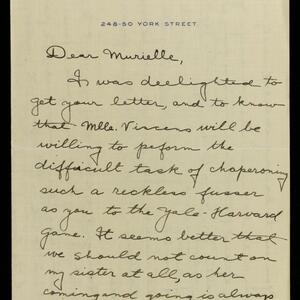 248-50 YORK STREET
Dear Murielle,
I was deelighted to
get your letter, and to know
that Mlle. Vincens will be
willing to peform the
difficult task of chaperoning
such a reckless fusser
as you to the Yale-Harvard
game. It seems better that
we should not count on
my sister at all, as her
coming and going is always